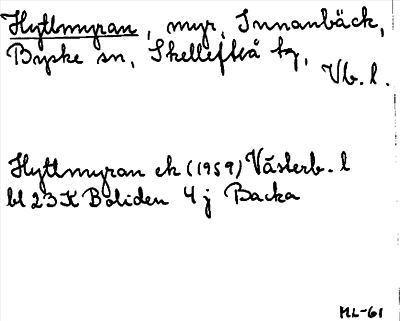 Hyttmyran, myr, Innanbäck,
Byske sn, Skellefteå tg,
Vb. l.
Hyttmyran ek (1959) Västerb. l
bl 23 K Boliden 4 j Backa
ML-61